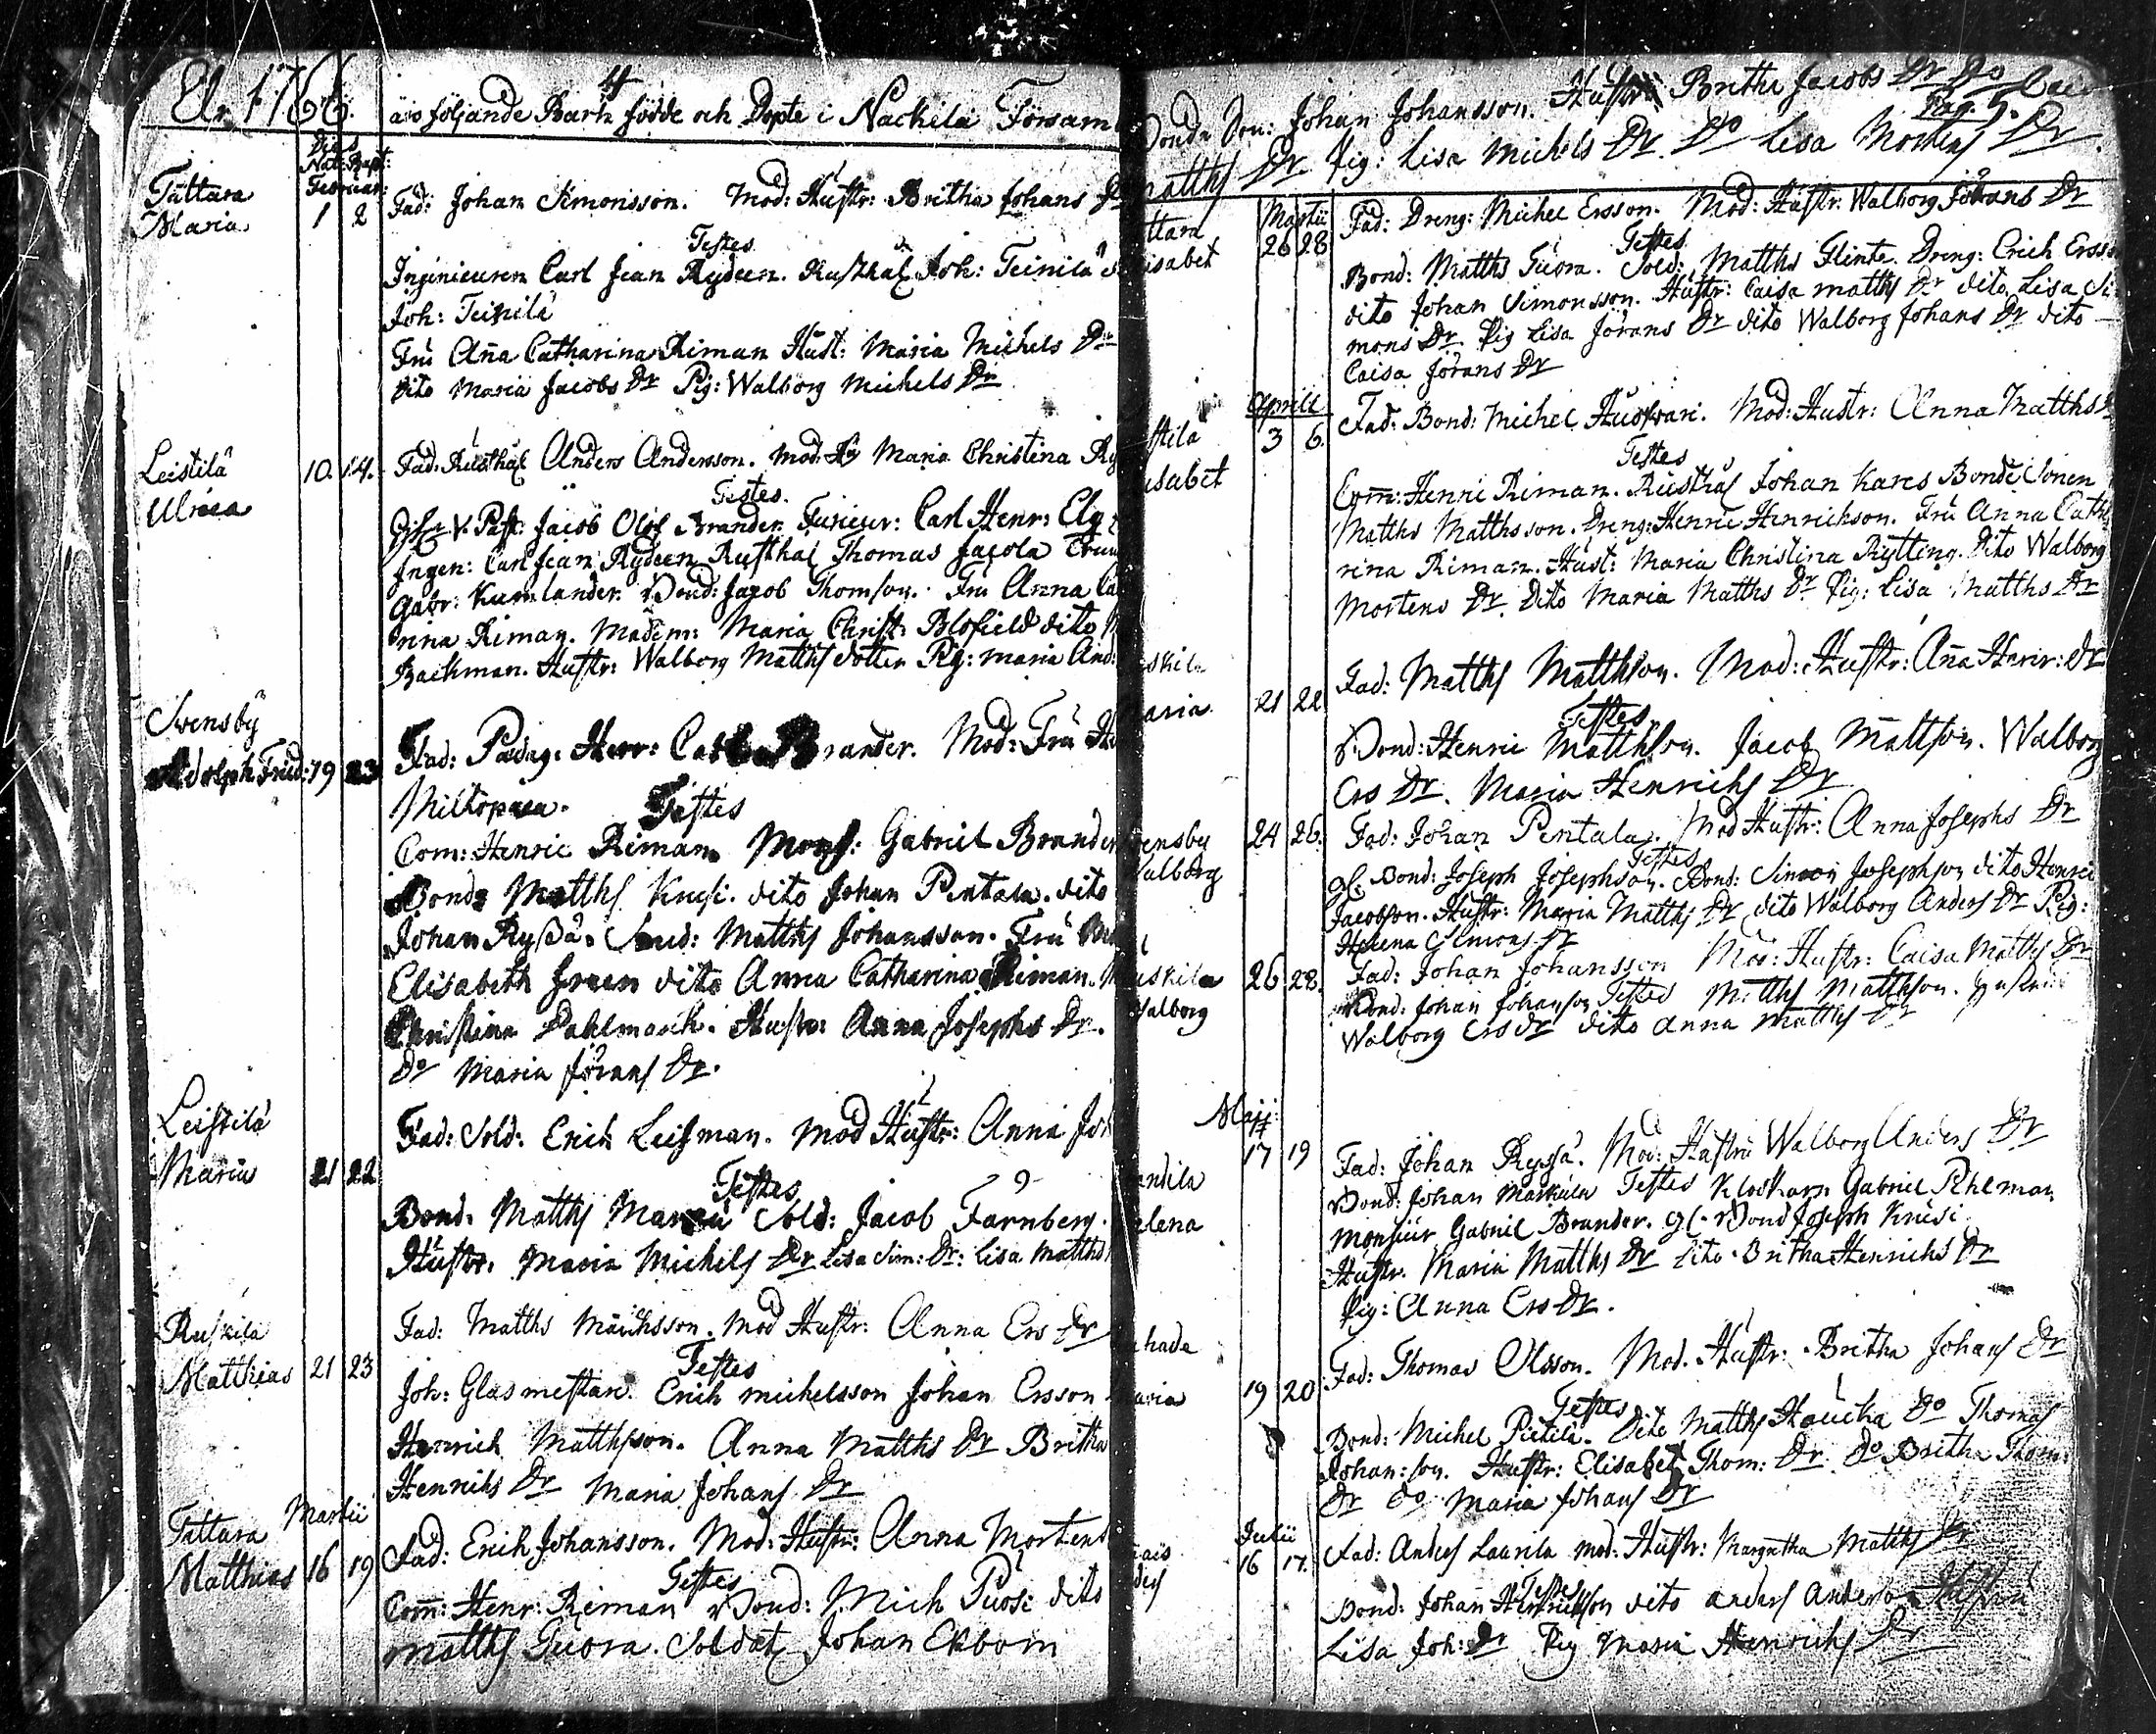 4
År 1766. äro följande Barn födde och Döpte i Nackila Försam
Dies
Nat: Bapt:
Februar:
Tattara
Maria 1 2 Fad: Johan Simonsson. Mod: Hustr: Britha Johans Dr
Testes
Ingenieuren Carl Jean Rydeen. Rusthål Joh: Teinilä
Joh: Teinilä
Fru Anna Catharina Riman Hust: Maria Michels Dr
dito Maria Jacobs Dr Pig: Walborg Michels Dr
Leistilä 10. 14. Fad. Rusthål Anders Andersson. Mod: Maria Christina Ry
Ulrica
Testes.
V. Past: Jacob Olof Brander. Furieur: Carl Henr: Elg
Ingen: Carl Jean Rydeen Rusthål Thomas Jacola
Gabr: Kumlander. Bond: Jacob Thomson. Fru Anna Ca
rina Riman. Madem: Maria Christ: Blofield dito
Backman. Hustr: Walborg Matths dotter Pig: Maria And:
Svensby
Adolph Frid: 19 23 Fad: Pædag: Herr: Carl Brander. Mod: Fru He
Miltopæa. Testes
Com: Henric Riman. Mons: Gabriel Brander
Bond: Matths Krusi. dito Johan Pentala. dito
Johan Ryssä. Smed: Matths Johansson. Fru
Elisabeth Green dito Anna Catharina Riman.
Christina Dahlmarck. Hustr: Anna Josephs Dr.
Do Maria Jörans Dr.
Leistilä
Maria 21 22 Fad: Sold: Erich Leisman. Mod Hustr: Anna Joh
Testes
Bond: Matths Sold: Jacob Farnberg.
Hustr. Maria Michels Dr Lisa Sim: Dr: Lisa Matths
Ruskila
Matthias 21 23 Fad: Matths Michsson. Mod Hustr: Anna Ers Dr
Testes
Joh: Glasmestare. Erich Michelsson Johan Ersson
Henrich Matthsson. Anna Matths Dr Britha
Henrichs Dr Maria Johans Dr
Martii
Tattara
Matthias 16 19 Fad: Erich Johansson. Mod: Hustr: Anna Mortens
Testes
Com: Henr: Riman Bond: Mich Puosi dito
Matths Tuora. Soldat Johan Ekbom
Bonde Son: Johan Johansson. Hustru Britha Jacobs Dr Do Cai
Pag. 5.
Matths Dr. Pig: Lisa Michels Dr. Do Lisa Mortens Dr.
ttara Martii
isabet 26 28 Fad: Dreng: Michel Ersson. Mod: Hustr: Walborg Jörans Dr
Testes
Bond: Matths Tuora. Sold: Matths Flinte. Dreng: Erich Ersso
dito Johan Simonsson. Hustr: Caisa Matths Dr dito Lisa Si
mons Dr Pig Lisa Jörans Dr dito Walborg Johans Dr dito
Caisa Jörans Dr
Aprill
stila 3 6 Fad: Bond: Michel Huofvari. Mod: Hustr: Anna Matths
isabet
Testes
Com: Henric Riman. Rusthål Johan Kares Bonde Sonen
Matths Matthsson. Dreng: Henric Henrichson. Fru Anna Catha
rina Riman. Hust: Maria Christina Rytting. dito Walborg
Mortens Dr. dito Maria Matths Dr Pig: Lisa Matths Dr
uskila
aria 21 22 Fad: Matths Matthson. Mod: Hustr: Anna Henr: Dr
Testes
Bond: Henric Matthson. Jacob Mattson. Walborg
Ers Dr. Maria Henrichs Dr
vensby 24 26. Fad: Johan Pentala. Mod Hustr: Anna Josephs Dr
Walborg
Testes
Gl. Bond: Joseph Josephson. Bond: Simon Josephson dito Henric
Jacobson. Hustr: Maria Matths Dr dito Walborg Anders Dr Pig:
Helena Simons Dr
uskila 26 28. Fad: Johan Johansson Mod: Hustr: Caisa Matths Dr
Walborg Bond: Johan Johanson Testes Matths Matthson. Hustru
Walborg Ers dr dito Anna Matths Dr
Majj
17 19 Fad: Johan Ryssä. Mod: Hustru Walborg Anders Dr
ndila
elena
Bond: Johan Markula Testes Klockarn Gabriel Rhlman
Monsiür Gabriel Brander. Gl. Bond Joseph Krusi
Hustr. Maria Matths Dr dito Britha Henrichs Dr
Pig: Anna Ers Dr.
hade
aria 19 20 Fad: Thomas Olsson. Mod. Hustr: Britha Johans Dr
Testes
Bond: Michel Pietilä. dito Matths Haucka Do Thomas
Johan:son. Hustr: Elisabet Thom: Dr Do Britha Thom:
Dr Do Maria Johans Dr
Julii
16 17. Fad: Anders Laurila Mod: Hustr: Margretha Matths Dr
Testes
Bond: Johan Henrichson dito Anders Anderson Hustru
Lisa Joh: Dr Pig Maria Henrichs Dr